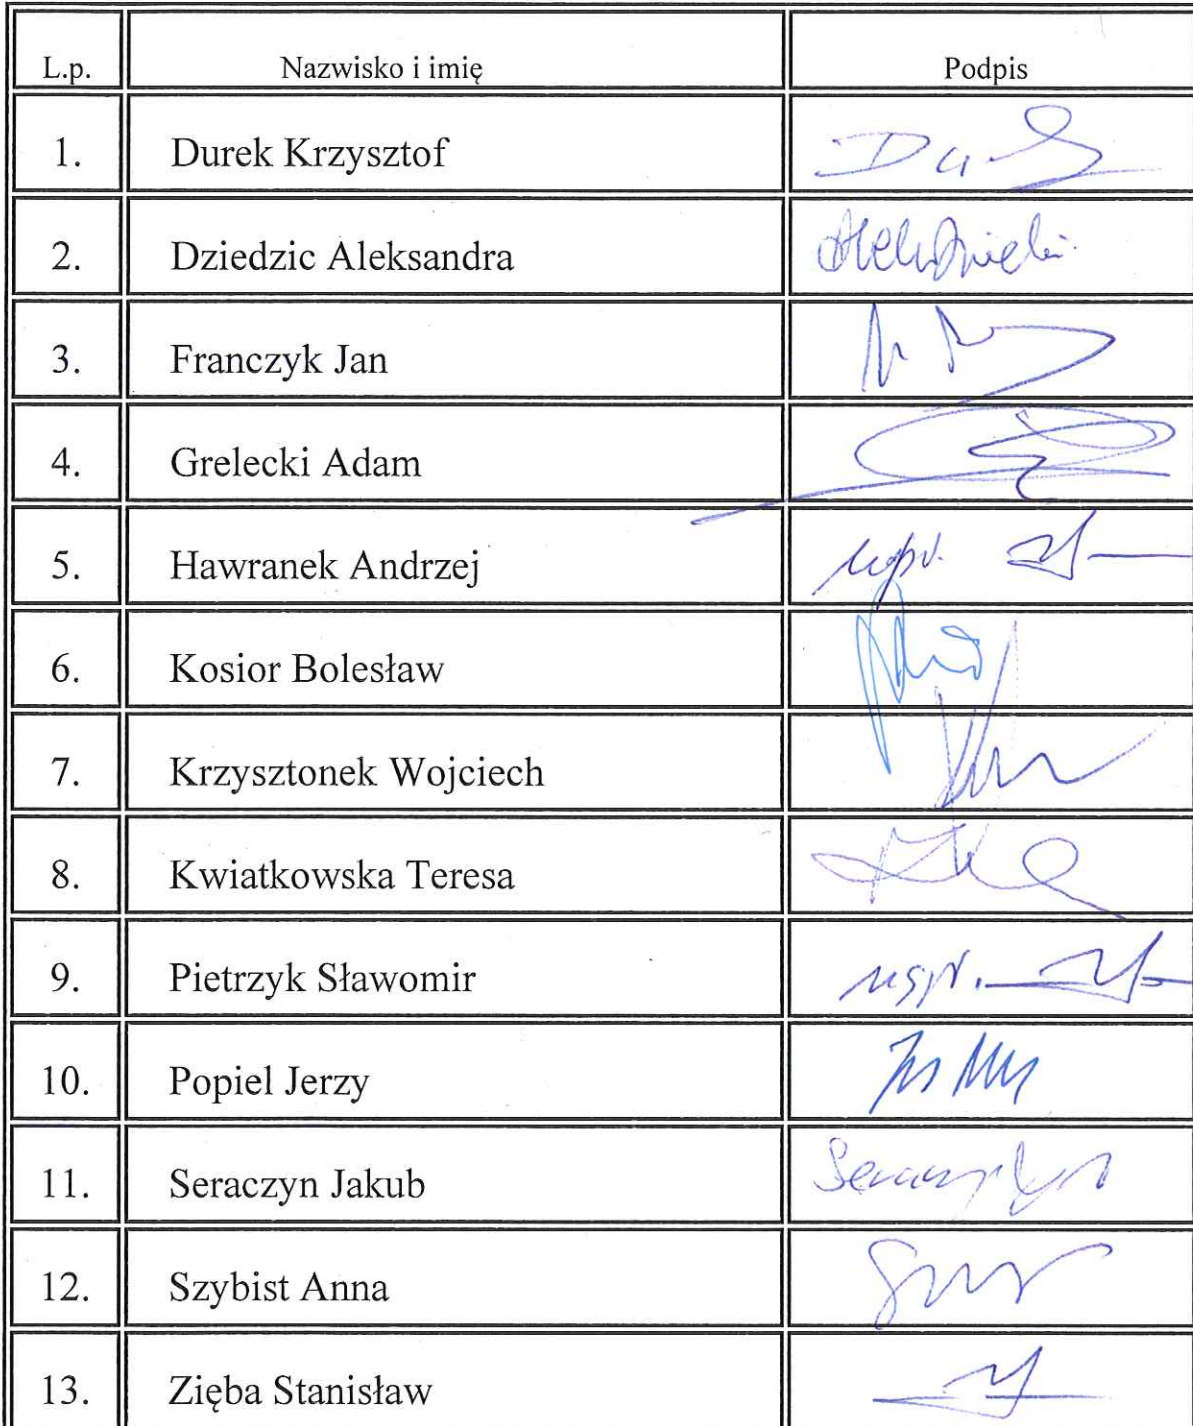 L.p. Nazwisko i imię Podpis
1. Durek Krzysztof
2. Dziedzic Aleksandra
3. Franczyk Jan
4. Grelecki Adam
5. Hawranek Andrzej
6. Kosior Bolesław
7. Krzysztonek Wojciech
8. Kwiatkowska Teresa
9. Pietrzyk Sławomir uspr.
10. Popiel Jerzy
11. Seraczyn Jakub
12. Szybist Anna
13. Zięba Stanisław